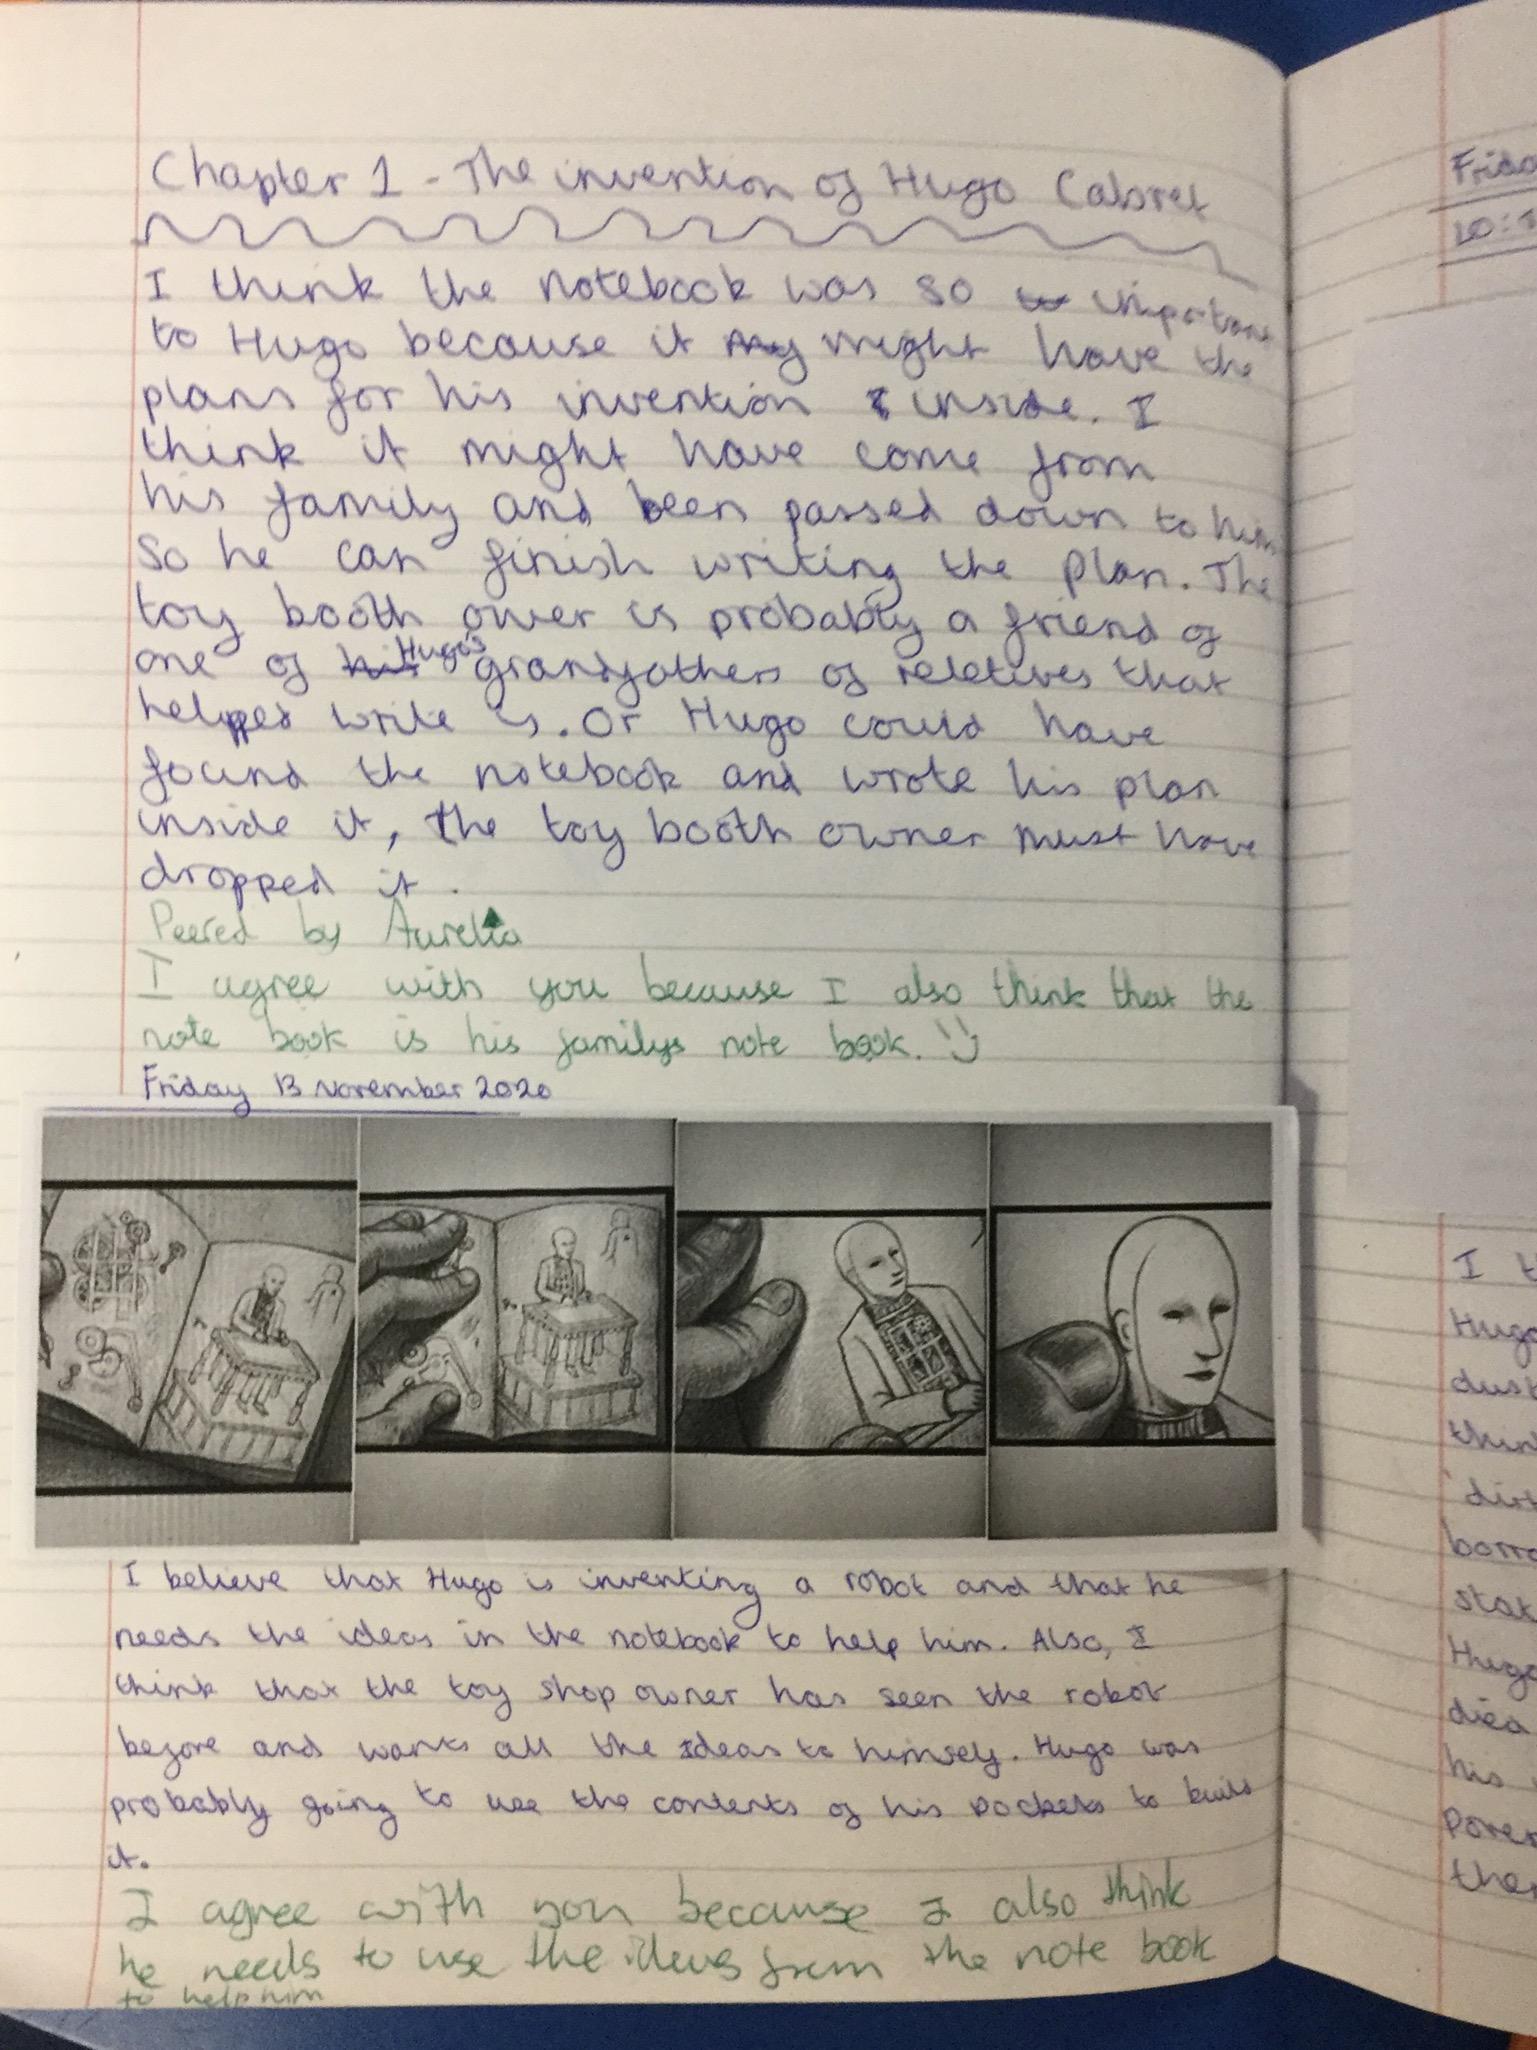 Chapter 1 - The invention of Hugo Cabret
I think the notebook was so important
to Hugo because it might have the
plans for his invention inside. I
think it might have come from
his family and been passed down to him
so he can finish writing the plan. The
toy booth owner is probably a friend of
one of Hugo's grandfathers of reletives that
helpped write is. Or Hugo could have
found the notebook and wrote his plan
inside it, the toy booth owner must have
dropped it.
Peered by Aurelia
I agree with you because I also think that the
note book is his familys note book. :)
Friday 13 November 2020
I believe that Hugo is inventing a robot and that he
needs the ideas in the notebook to help him. Also, I
think that the toy shop owner has seen the robot
before and wants all the Ideas to himself. Hugo was
probably going to use the contents of his pockets to build
it.
I agree with you because I also think
he needs to use the ideas from the note book
to help him
I
Hugo
his